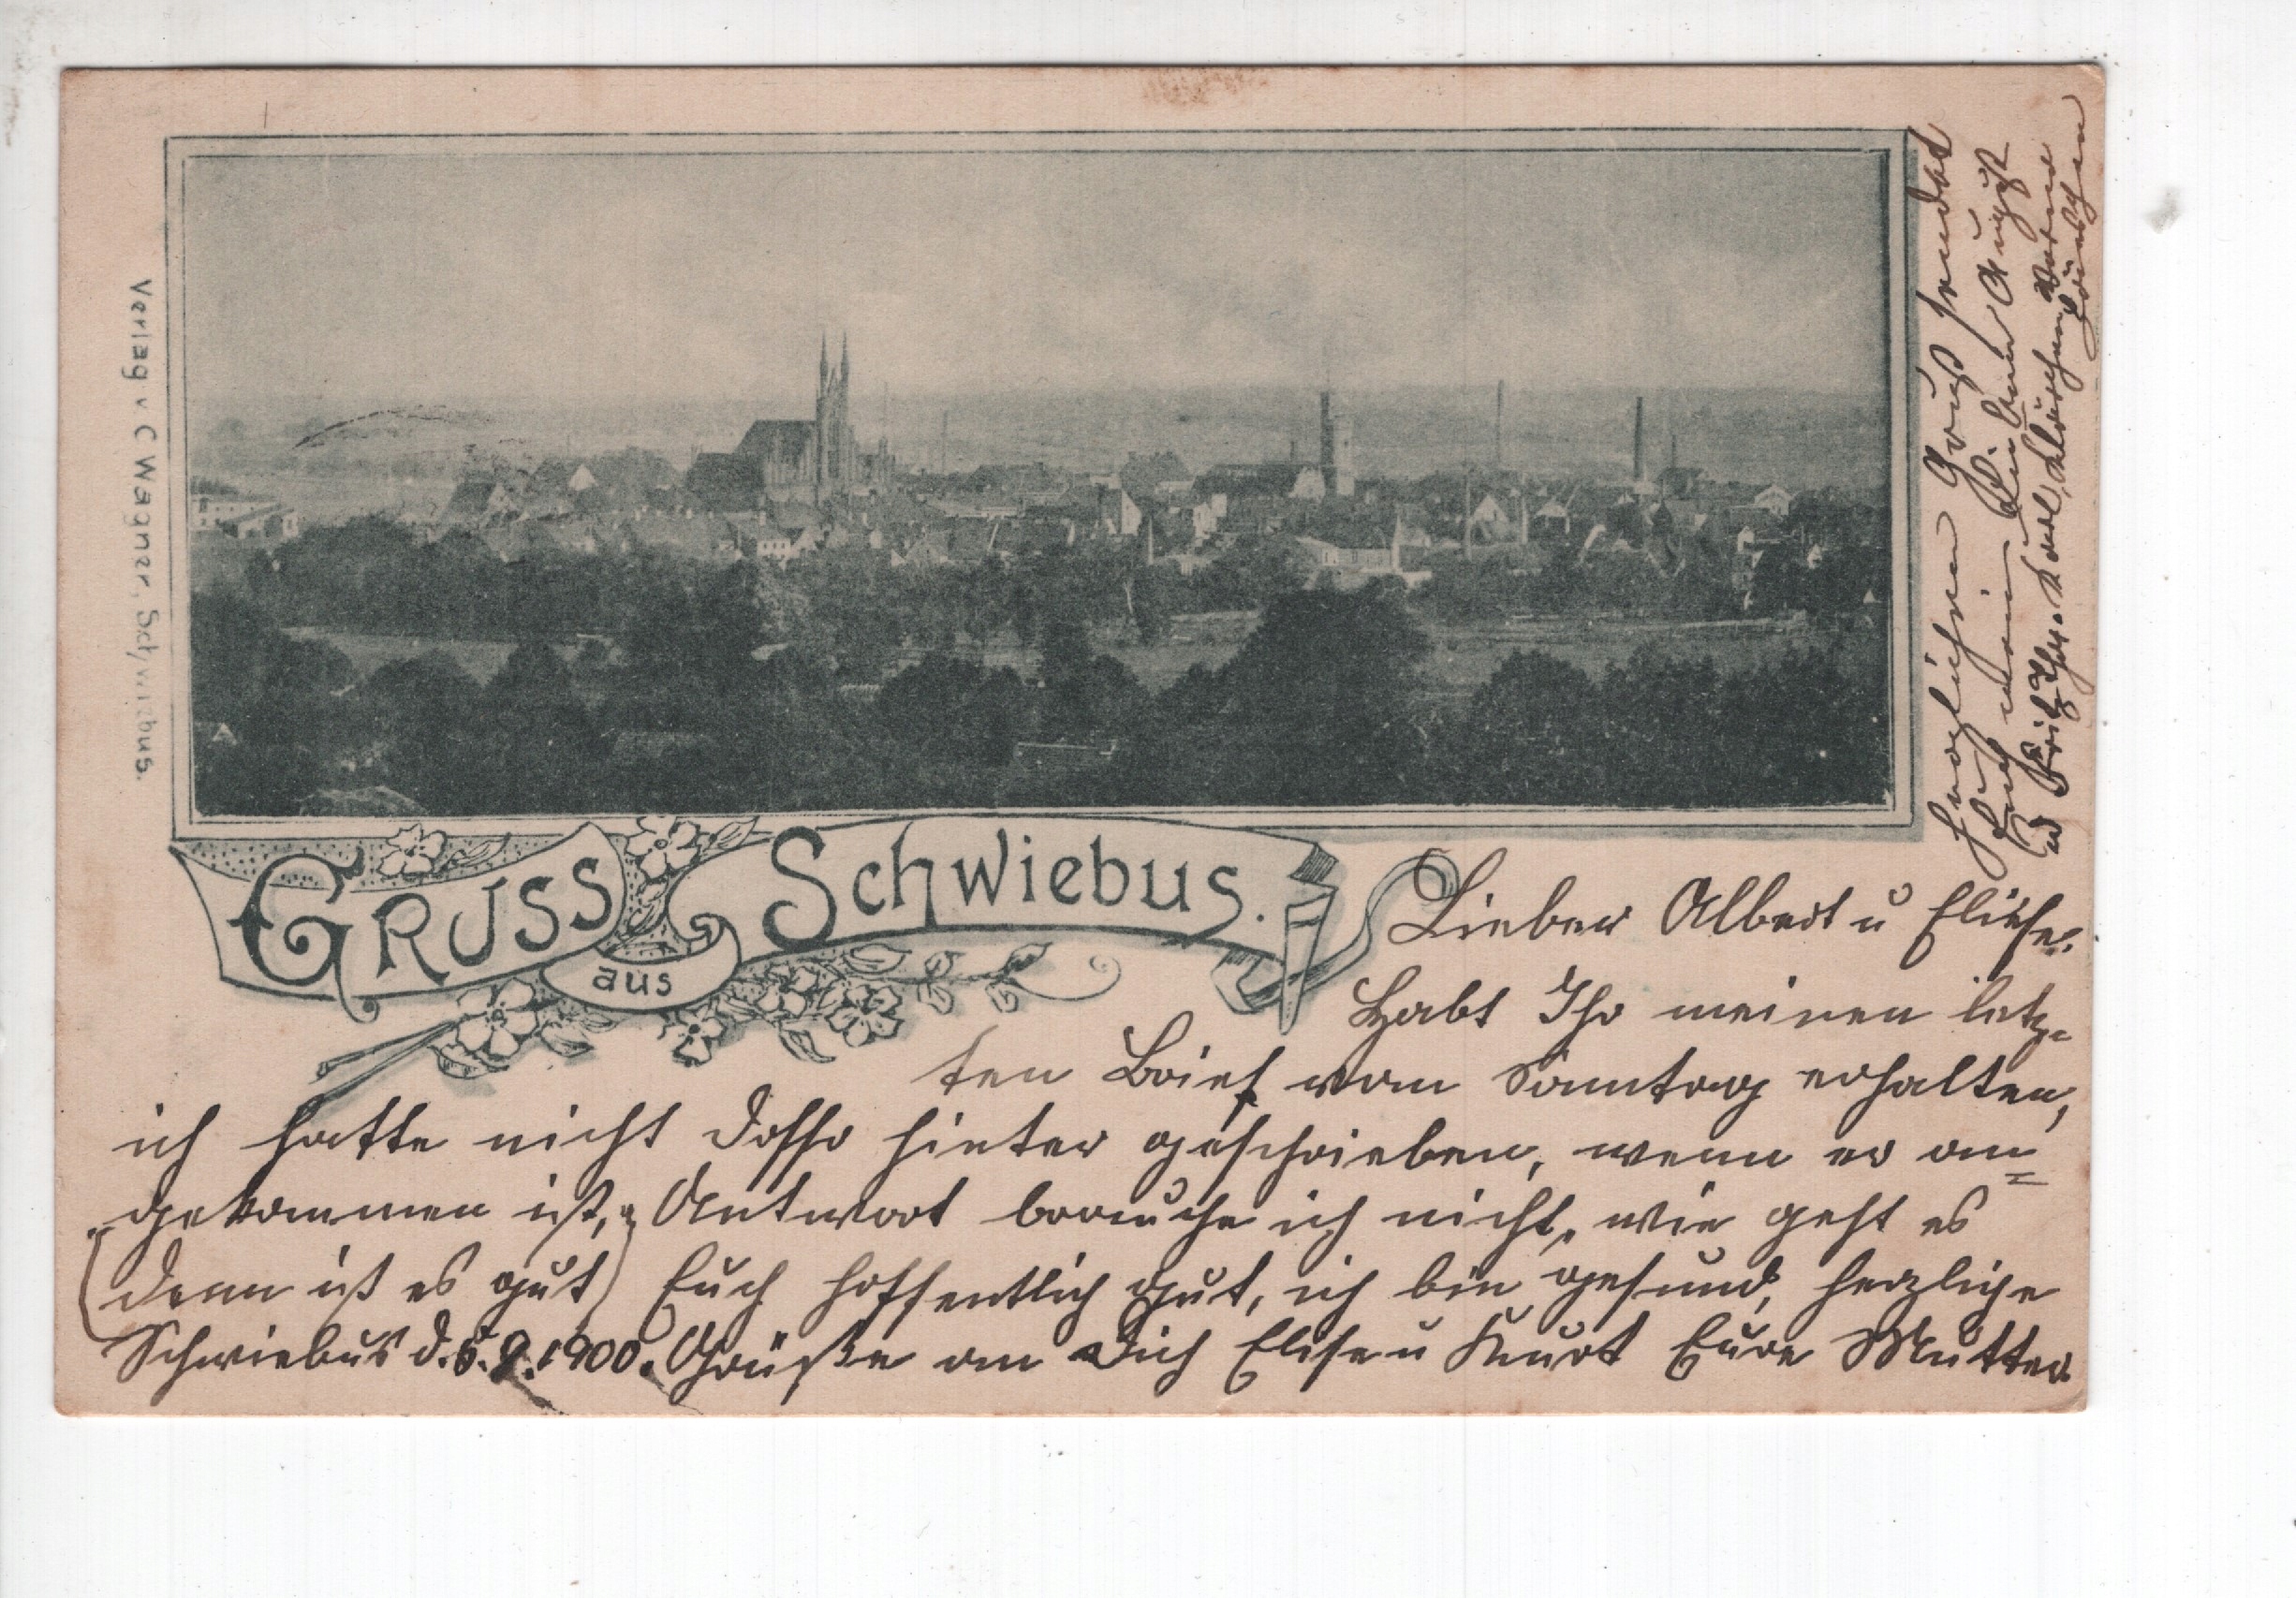 Verlag v C Wagner, Schwiebus.
GRUSS
aus
Schwiebus.
Lieber Albert u Eliese.
Habt Ihr meinen letz-
ten Brief vom Sonntag erhalten,
ich hatte nicht hinter geschrieben, wenn er an=
gekommen ist, Antwort brauche ich nicht, wie geht es
(denn ist es gut) Euch hoffentlich gut, ich bin gesund, herzliche
Schwiebus d. 6.9.1900. Grüße an Dich Elise u Kurt Eure Mutter
Herzlichen Gruß sendet
Euch mein lieber August
u Fritz